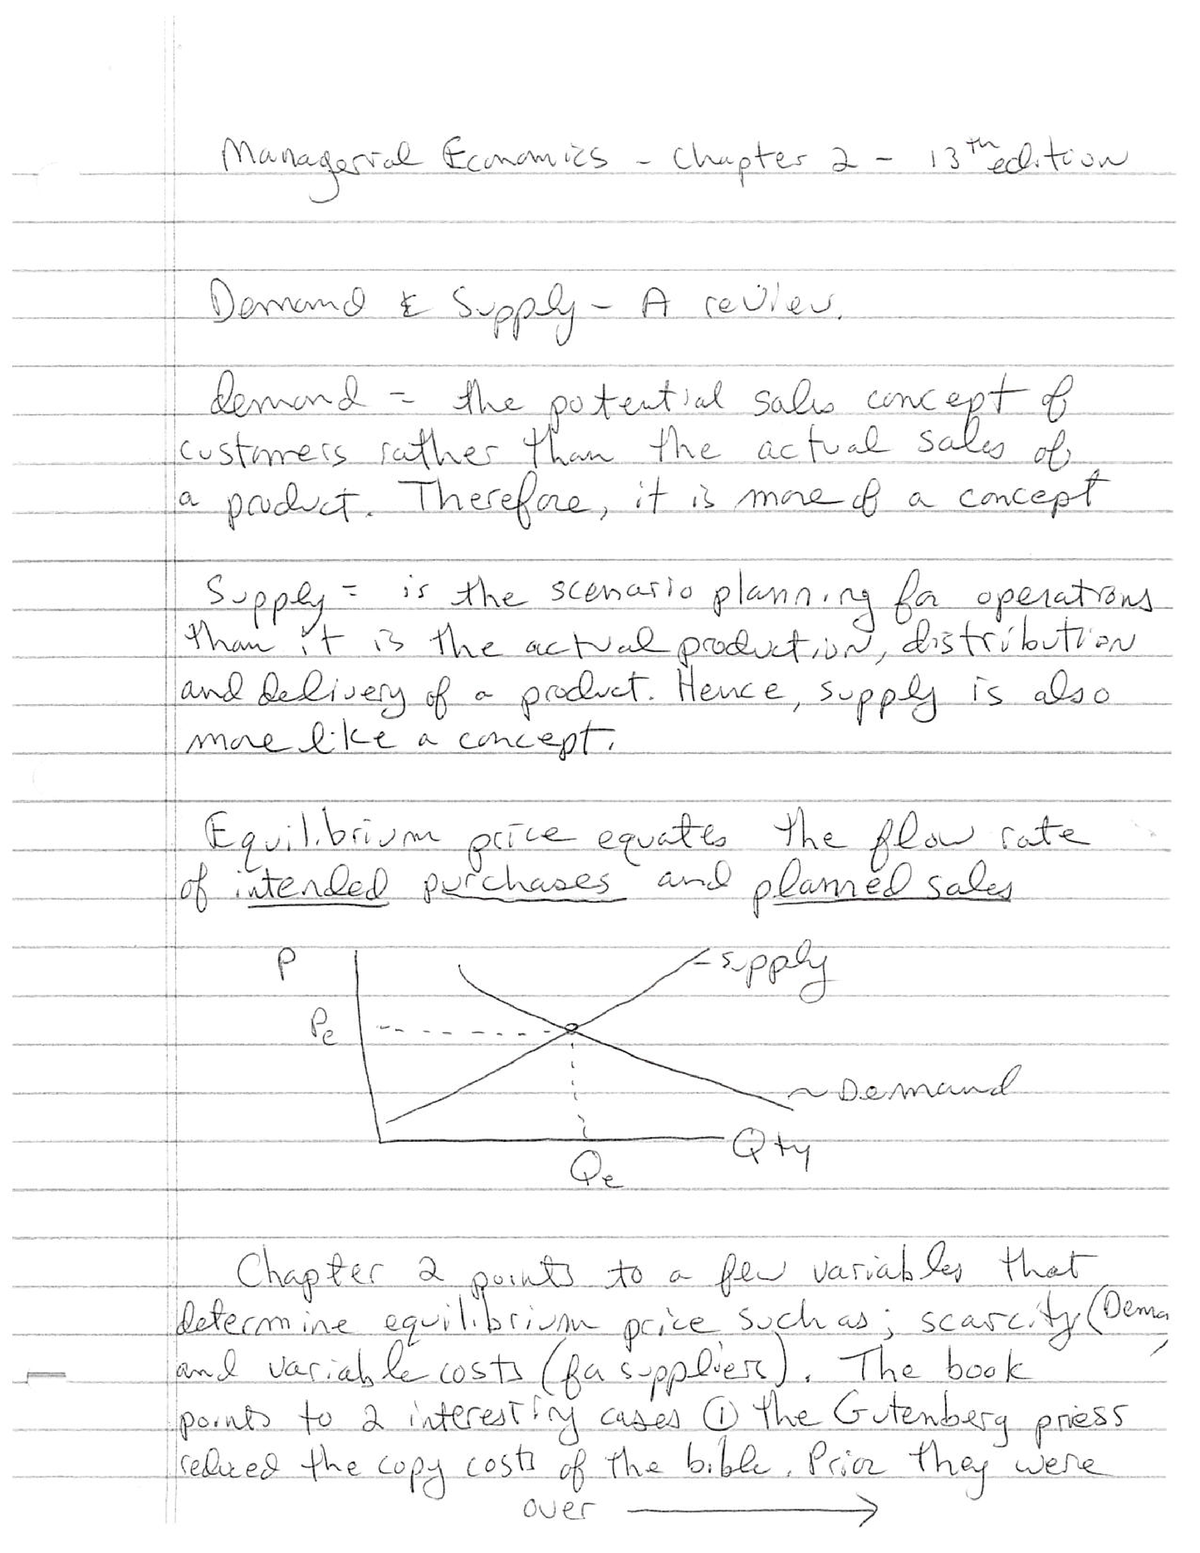 Managerial Economics - Chapter 2 - 13th edition
Demand & Supply - A review.
demand = the potential sales concept of
customers rather than the actual sales of
a product. Therefore, it is more of a concept
Supply = is the scenario planning for operations
than it is the actual production, distribution
and delivery of a product. Hence, supply is also
more like a concept.
Equilibrium price equates the flow rate
of intended purchases and planned sales
P
Supply
Pe
Demand
Qty
Qe
Chapter 2 points to a few variables that
determine equilibrium price such as; scarcity (Dema
and variable costs (for suppliers). The book
points to 2 interesting cases ① the Gutenberg press
reduced the copy costs of the bible. Prior they were
over →